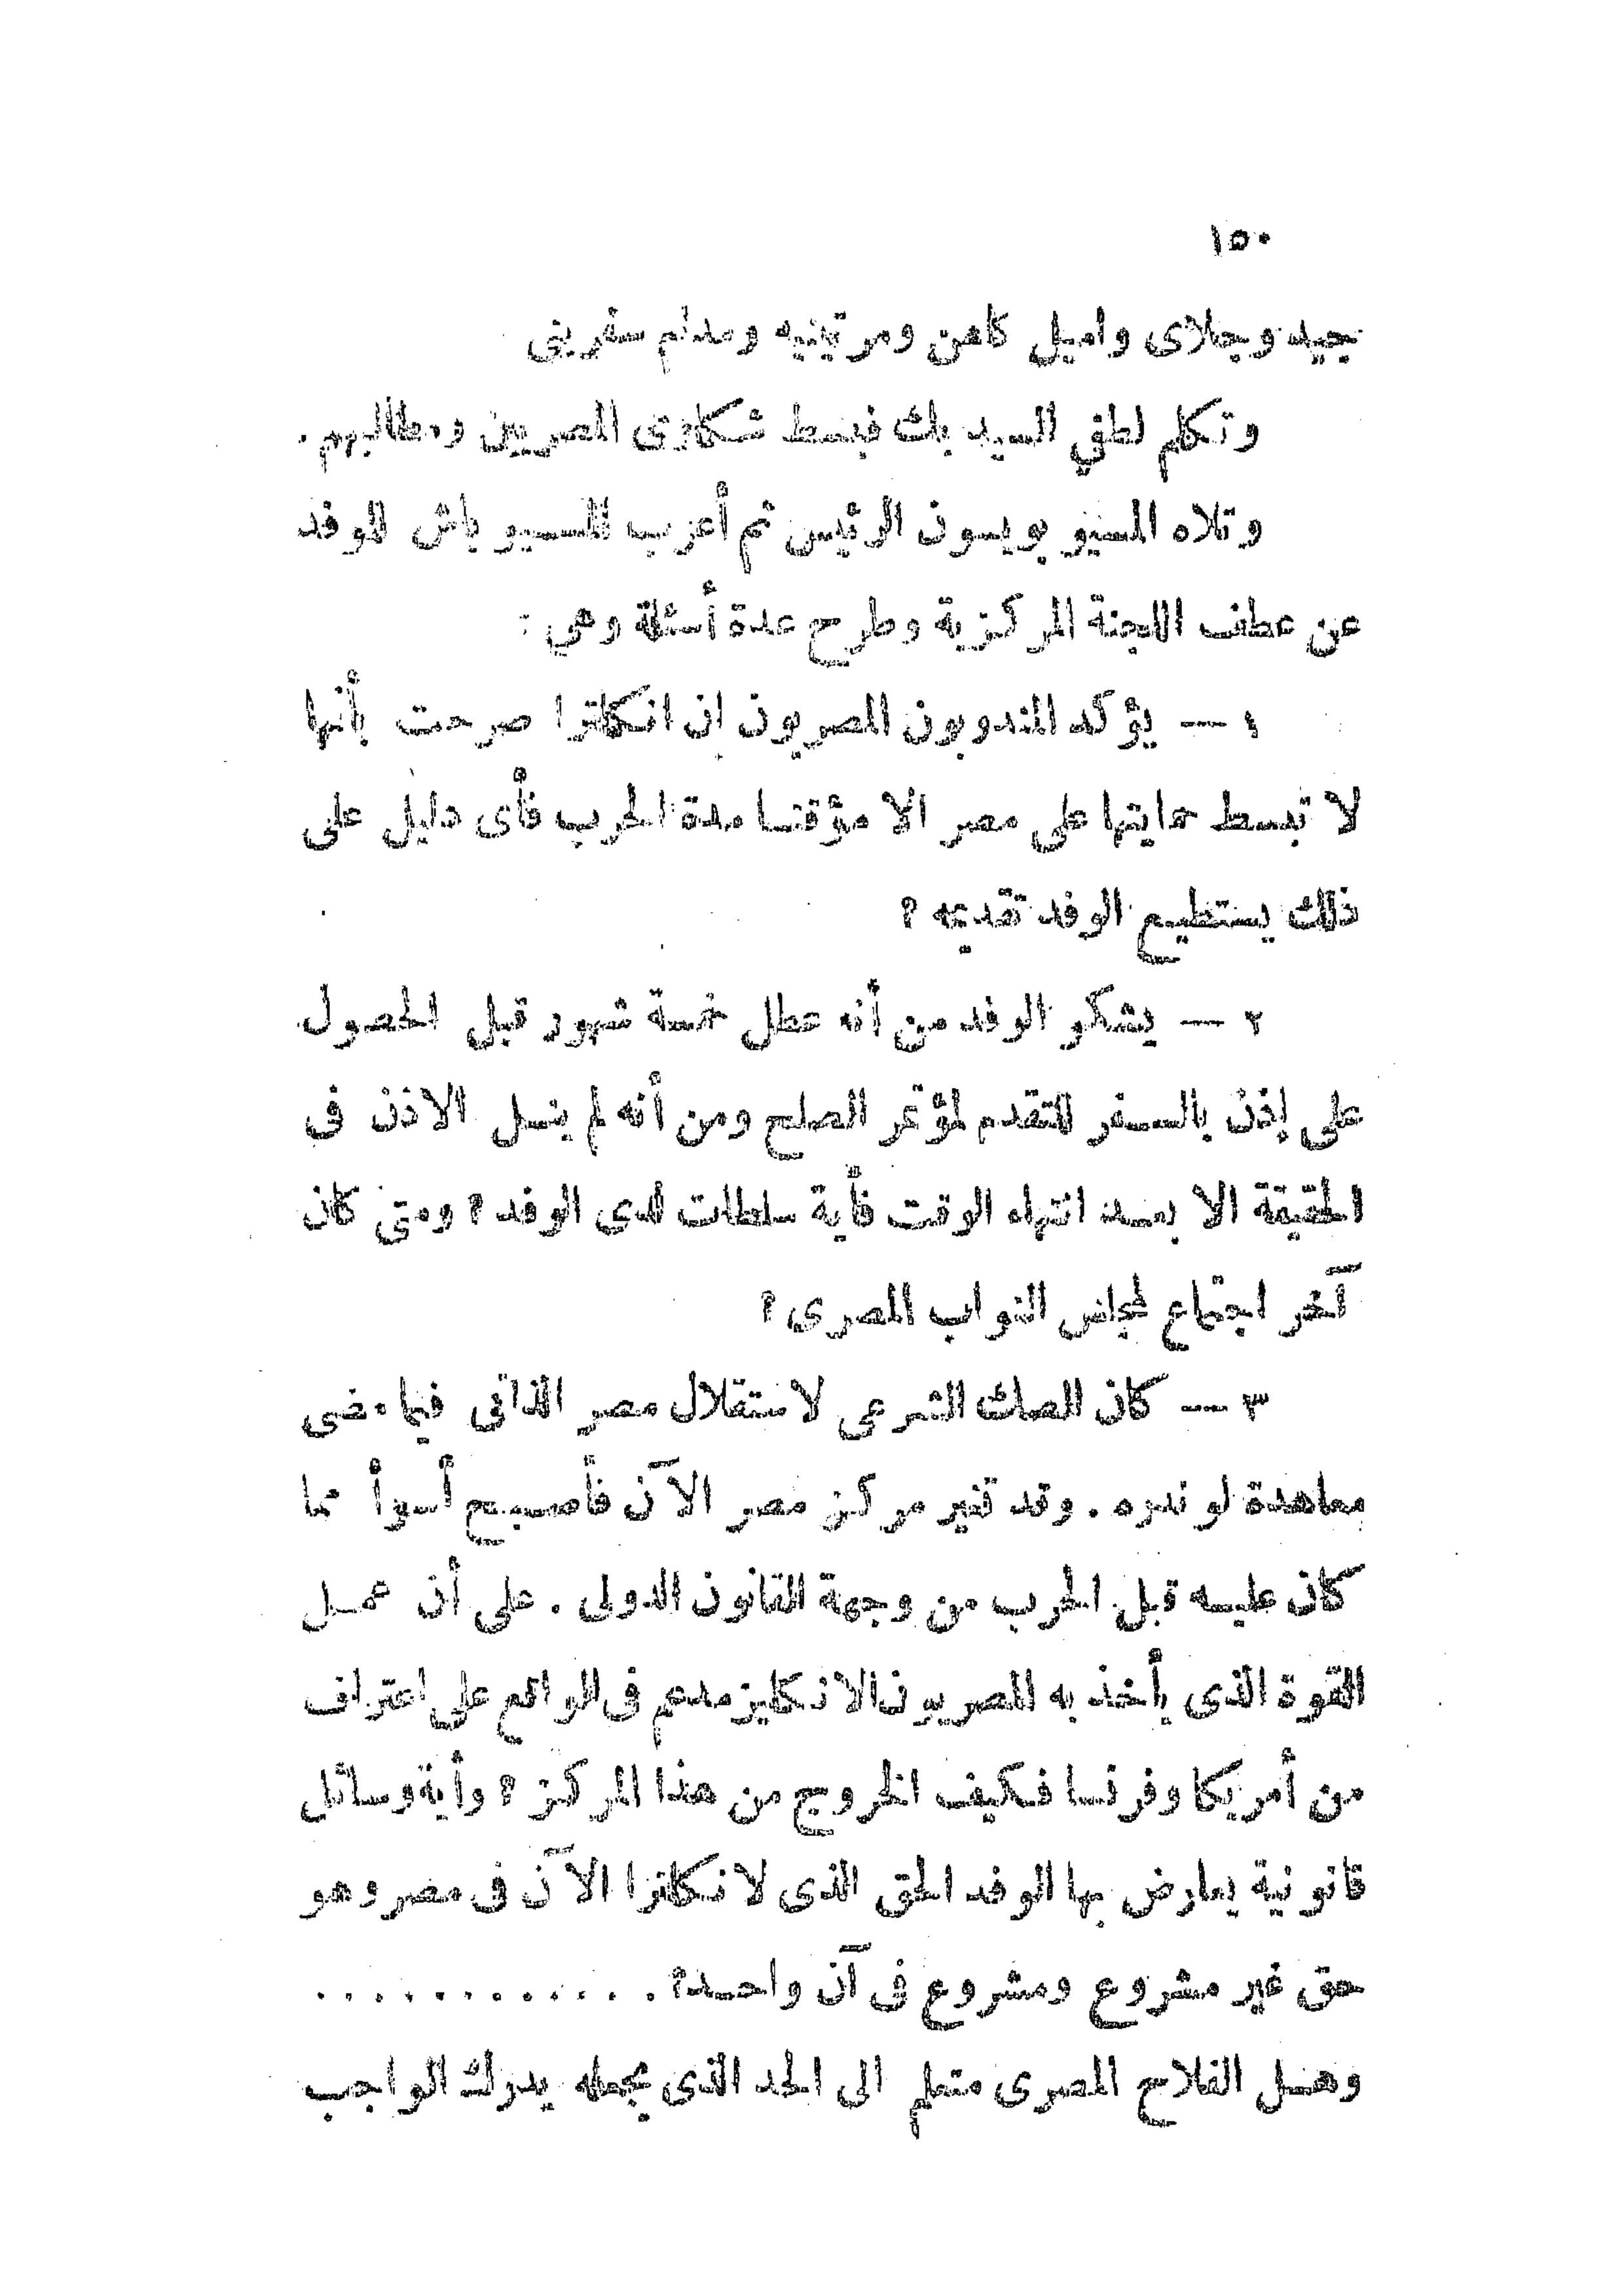 ١٥٠
جيد وجلاى واميل كاهن ومرتينيه ومدام سفرينى
وتكلم لطفي السيد بك فبسط شكاوى المصريين ومطالبهم.
وتلاه المسيو بويسون الرئيس ثم أعرب المسيو باش للوفد
عن عطف اللجنة المركزية وطرح عدة أسئلة وهي :
١ — يؤكد المندوبون المصريون ان انكلترا صرحت بأنها
لا تبسط حمايتها على مصر الا مؤقتا مدة الحرب فأى دليل على
ذلك يستطيع الوفد تقديمه ؟
٢ — يشكو الوفد من أنه عطل خمسة شهور قبل الحصول
على إذن بالسفر للتقدم لمؤتمر الصلح ومن أنه لم ينل الاذن فى
الحقيقة الا بعد انتهاء الوقت فأية سلطات لدى الوفد ؟ ومتى كان
آخر اجتماع لمجلس النواب المصرى ؟
٣ — كان الصك الشرعى لاستقلال مصر الذاتى فيما مضى
معاهدة لوندره . وقد تغير مركز مصر الآن فأصبح أسوأ مما
كان عليه قبل الحرب من وجهة القانون الدولى . على أن عمل
القوة الذى يأخذ به المصريون الانكليز مدعم فى الواقع على اعتراف
من أمريكا وفرنسا فكيف الخروج من هذا المركز ؟ وأية وسائل
قانونية يعارض بها الوفد الحق الذى لانكلترا الآن فى مصر وهو
حق غير مشروع ومشروع فى آن واحد؟ . . . . . . . . . . . . .
وهل الفلاح المصرى متعلم الى الحد الذى يجعله يدرك الواجب